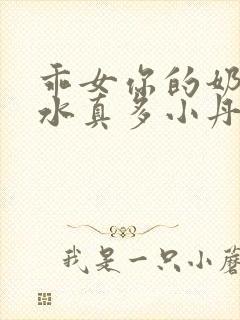 乖女你的奶
水真多小丹
我是一只小蘑